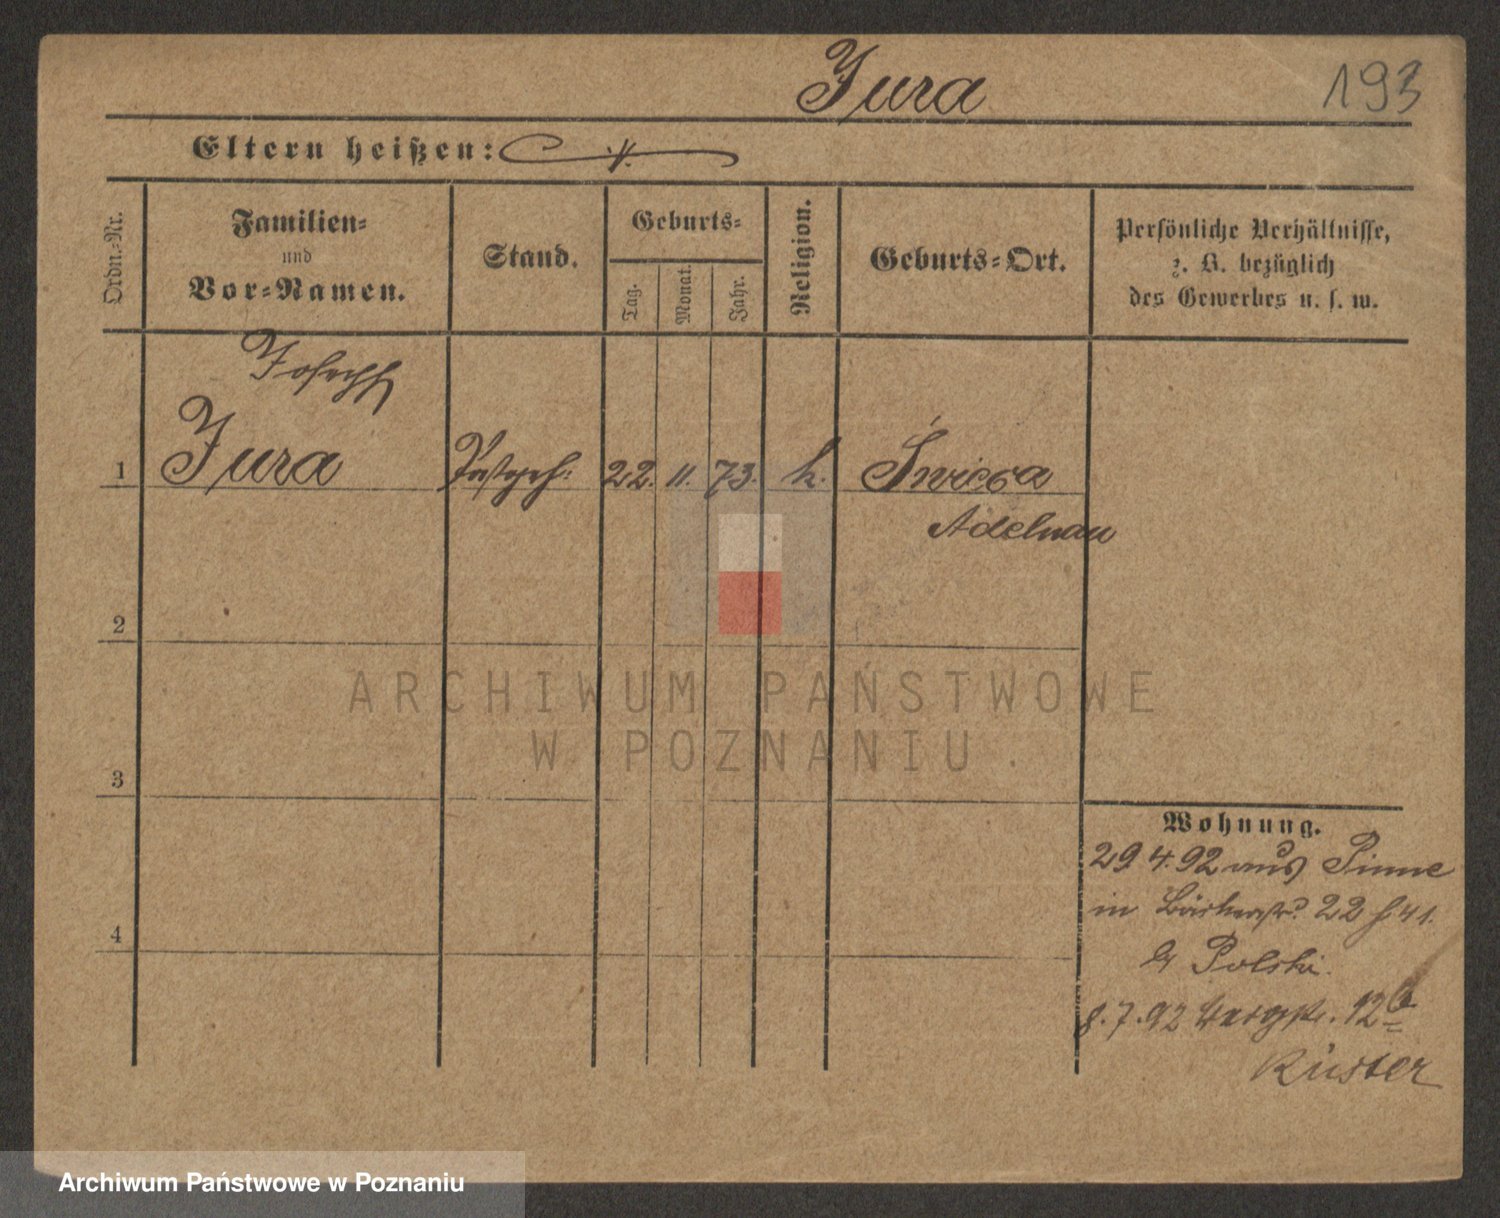 Jura
193
Eltern heißen:
Ordn.-Nr.
Familien-
und
Vor-Namen.
Stand.
Geburts-
Tag.
Monat.
Jahr.
Religion.
Geburts-Ort.
Persönliche Verhältnisse,
z. B. bezüglich
des Gewerbes u. s. w.
Joseph
1 Jura 22. 11. 73. k.
Adelnau
2
3
4
ARCHIWUM PAŃSTWOWE
W POZNANIU
Wohnung.
29 4. 92 aus Pinne
in Bäckerstr. 22
Polski.
8. 7. 92 Bergstr. 12b
Küster
Archiwum Państwowe w Poznaniu